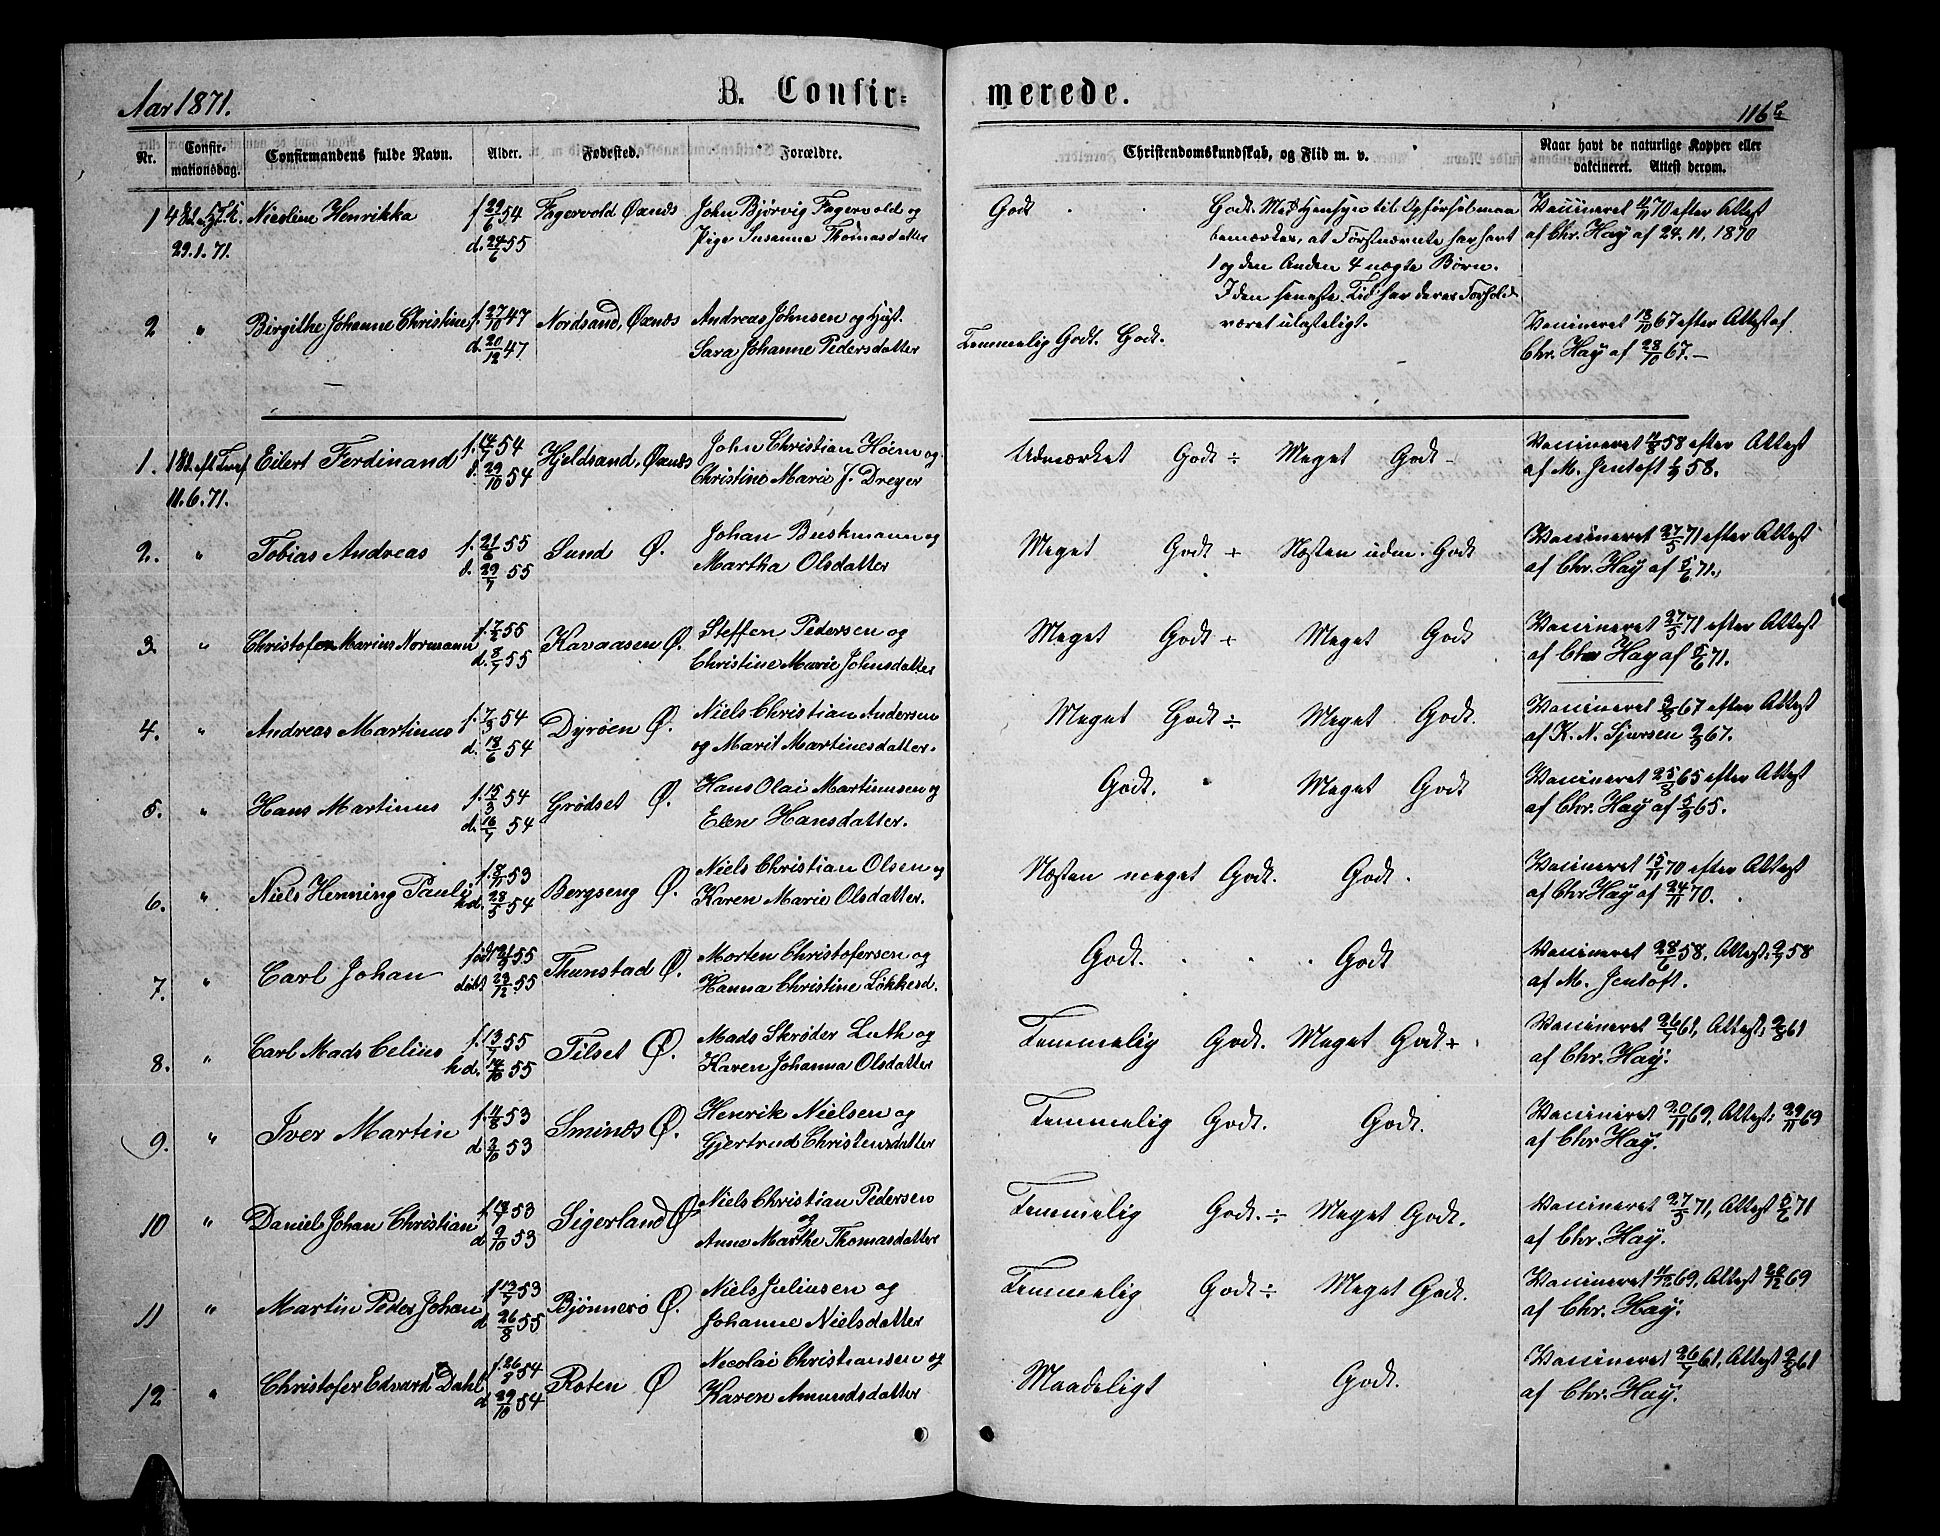 Aar 1871.
B. Confir-
merede.
116
Nr.
Confir-
mationsdag.
Confirmandens fulde Navn.
Alder.
Fødested.
Forældre.
Christendomskundskab, og Flid m. v.
Naar havt de naturlige Kopper eller
vakcineret. Attest derom.
1 29.1.71. Nicoline Henrikka f. 29/6 54 d. 24/6 55 Fagervold Øxnæs John Bjørvig Fagervold og
Pige Susanne Thomasdatter
Godt Godt. Med Hensyn til Opførsel maa
bemærkes, at Førstnævnte har havt
1 og den Anden 4 uægte Børn.
I den seneste Tid har deres Forhold
været ulasteligt.
Vaccineret 70 efter Attest
af Chr. Hay af 24. 11. 1870
2 " Birgithe Johanne Christine f. 27/10 47 d. 20/12 47 Nordsand, Øxnæs Andreas Johnsen og Hust.
Sara Johanne Pedersdatter
Temmelig Godt. Godt.
Vaccineret 18/10 67 efter Attest af
Chr. Hay af 28/10 67. –
1. 11.6.71. Eilert Ferdinand f. 14/7 54 d. 29/10 54 Hjeldsand, Øxnæs John Christian Høen og
Christine Marie J. Dreyer
Udmærket Godt ÷ Meget Godt –
Vaccineret 58 efter Attest
af M. Jentoft 58.
2. " Tobias Andreas f. 21/6 55 d. 29/7 55 Sund Ø. Johan Buskmann og
Martha Olsdatter
Meget Godt + Næsten udm. Godt
Vaccineret 27/5 71 efter Attest
af Chr. Hay af 5/6 71.
3 " Christofer Marius Normann f. 55 d. 8/7 55 Kavaasen Ø. Steffen Pedersen og
Christine Marie Johnsdatter
Meget Godt + Meget Godt
Vaccineret 27/5 71 efter Attest
af Chr Hay af 5/6 71.
4. " Andreas Martinus f. 7/3 54 d. 18/6 54 Dyrøen Ø. Niels Christian Andersen
og Marit Martinesdatter.
Meget Godt ÷ Meget Godt.
Vaccineret 67 efter Attest
af K. N. Sjursen 67.
5. " Hans Martinus f. 15/3 54 d. 16/7 54 Grødset Ø. Hans Olai Martinusen og
Elen Hansdatter.
Godt. Meget Godt
Vaccineret 25/8 65 efter Attest
af Chr. Hay af 5/9 65.
6. " Niels Henning Pauli f. 8/11 53 hd. 28/5 54 Bergseng Ø. Niels Christian Olsen og
Karen Marie Olsdatter.
Næsten meget Godt. Godt.
Vaccineret 15/11 70 efter Attest
af Chr Hay af 24/11 70.
7. " Carl Johan født 55 døbt 23/12 55 Thunstad Ø. Morten Christofersen og
Hanna Christine Løkkesd.
Godt. Godt
Vaccineret 28/6 58, Attest: 58
af M. Jentoft.
8. " Carl Mads Celius f. 13/7 55 hd. 14/10 55 Tilset Ø. Mads Skrøder Luth og
Karen Johanna Olsdatter
Temmelig Godt. Meget Godt +
Vaccineret 26/7 61, Attest: 61
af Chr. Hay.
9. " Iver Martin f. 4/8 53 d 2/10 53 Sminæs Ø. Henrik Nielsen og
Gjertrud Christensdatter
Temmelig Godt. Godt.
Vaccineret 20/11 69, Attest: 29/11 69
af Chr Hay.
10 " Daniel Johan Christian f. 53 d 9/10 53 Sigerland Ø Niels Christian Pedersen
og
Anne Marthe Thomasdatter
Temmelig Godt. ÷ Meget Godt.
Vaccineret 27/5 71, Attest 5/6 71
af Chr. Hay.
11 " Martin Peder Johan f 13/7 53 d 26/8 55 Bjønnerø Ø. Niels Juliusen og
Johanne Nielsdatter
Temmelig Godt ÷ Meget Godt.
Vaccineret 69, Attest 20/12 69
af Chr. Hay.
12 " Christofer Edvard Dahl f. 26/3 54 d 29/10 54 Roten Ø Nicolai Christiansen og
Karen Amundsdatter
Maadeligt Godt.
Vaccineret 26/7 61, Attest 61
af Chr. Hay.